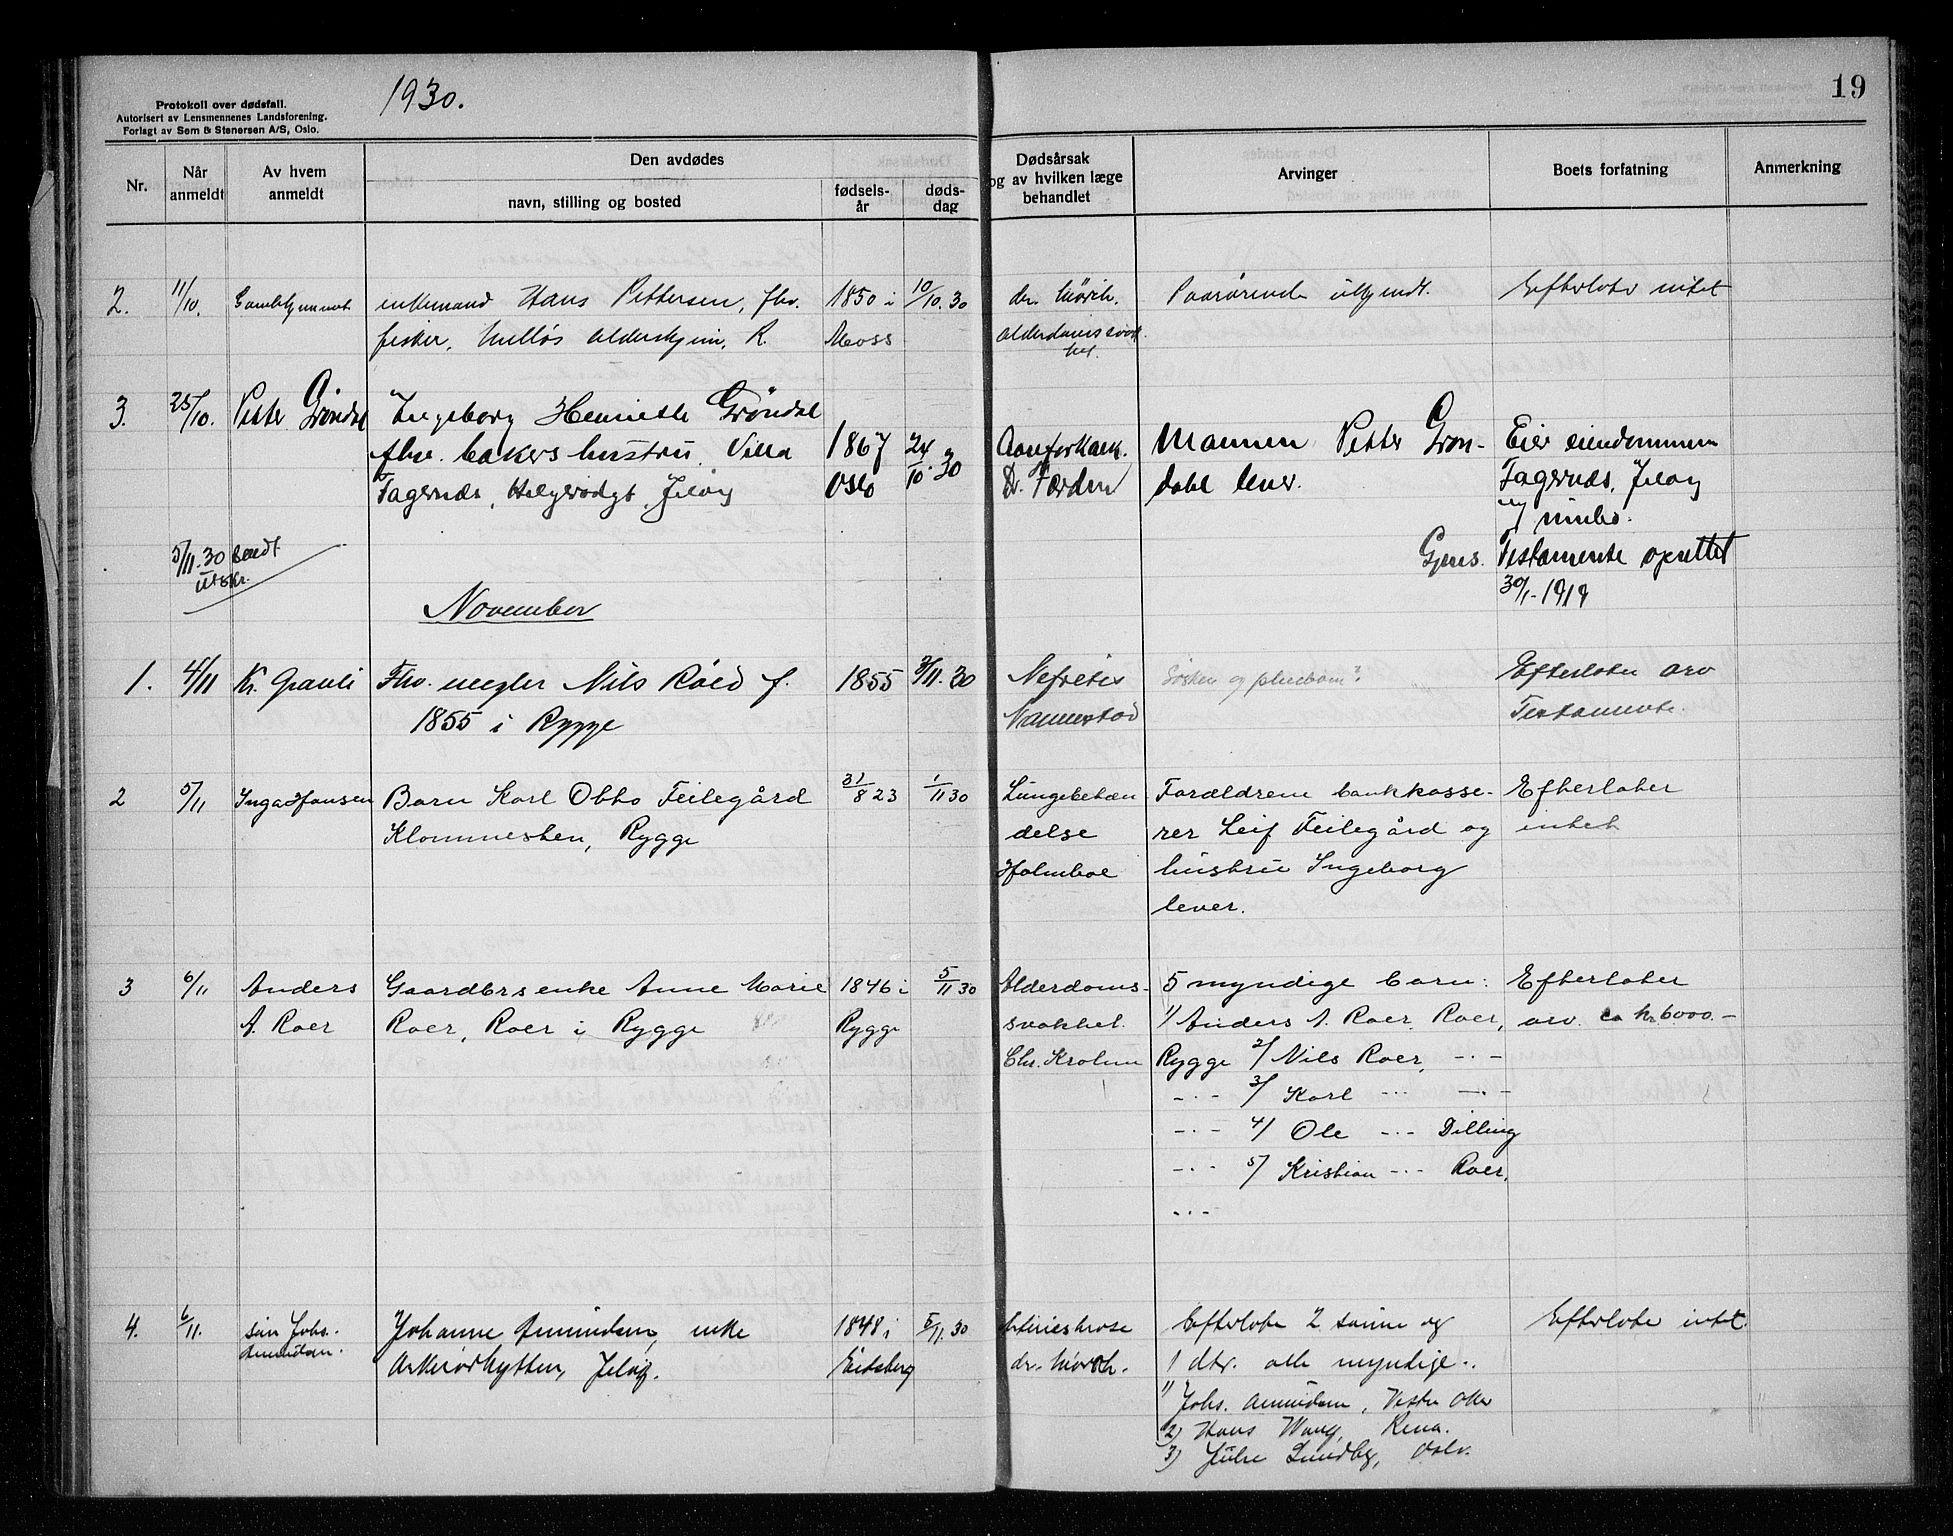 1930.
19
Protokoll over dødsfall.
Autorisert av Lensmennenes Landsforening.
Forlagt av Sem & Stenersen A/S, Oslo.
Nr.
Når anmeldt
Av hvem anmeldt
Den avdødes
navn, stilling og bosted
fødsels-år
døds-dag
Dødsårsak
og av hvilken læge
behandlet
Arvinger
Boets forfatning
Anmerkning
2. 11/10. enkemand Hans Pettersen, fhv. 1850 i 10/10.30 Paarørende Efterlater intet
fisker, aldershjem, R. Moss
3. 25/10. Petter Grøndal Ingeborg Henriette Grøndal
fhv. bakers hustru. Villa 1867 24/10.30 Mannen Petter Grøn- Eier eiendommen
Fagernæs, Jeløy Oslo Dr. Førden dahl lever. Fagernæs, Jeløy
5/11.30 sendt
utskr.
Gjens. Testamente oprettet
30/1-1919
November
1. 4/11 Kr. Fhv. megler Nils Röed f. 1855 3/11.30 Nefritis Søsken og Efterlater arv
1855 i Rygge Nannestad Testamente.
2 5/11 Inga Hansen Barn Karl Otto Feilegård 31/8 23 1/11 30 Lungebetæn Forældrene bankkasse- Efterlater
Klommesten, Rygge delse rer Leif Feilegård og intet
Holmboe hustru Ingeborg
lever.
3 6/11 Anders Gaardbrs enke Anne Marie 1846 i 5/11 30 Alderdoms- 5 myndige barn: Efterlater
A. Roer Roer, Roer i Rygge Rygge svakhet. 1/ Anders A. Roer, Roer, arv. ca kr 6000.-
Chr. Rygge 2/ Nils Roer, -·-
-·- 3/ Karl -·- -·-
-·- 4/ Ole -·- Dilling
-·- 5/ Kristian -·- Roer,
-·-
4. 6/11. søn Johs. Johanne Amundsen, enke 1848 i 5/11.30 Efterlate 2 sønne og Efterlate intet.
Amundsen. Jeløy. Eidsberg 1 dtr. alle myndige.
1) Johs. Amundsen,
2) Hans Wang, Rena.
3) Julie Lundby, Oslo.